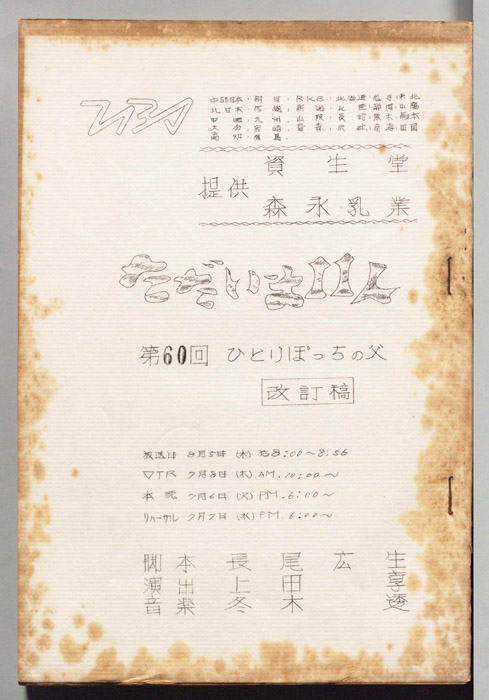 TBS
提供 資生堂
森永乳業
ただいま11人
第60回 ひとりぽっちの父
改訂稿
放送日 8月5日 (木) 后8:00〜8:56
VTR 7月8日 (木) AM.10:00〜
本読 7月6日 (火) PM.6:00〜
リハーサル 7月7日 (水) PM.6:00〜
脚本 長尾広生
演出 上田享
音楽 冬木透